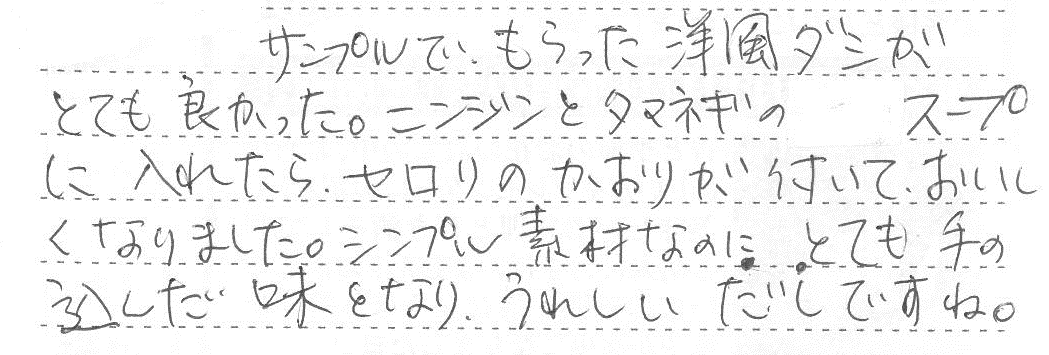 サンプルで、もらった洋風ダシが
とても良かった。ニンジンとタマネギの スープ
に入れたら、セロリのかおりが付いて、おいし
くなりました。シンプル素材なのに、とても手の
込んだ味となり、うれしいだしですね。